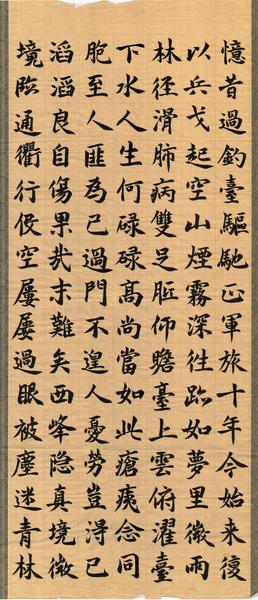 憶昔過釣臺驅馳正軍旅十年今始来復
以兵戈起空山煙霧深往跡如夢里微雨
林徑滑肺病雙足胝仰瞻臺上雲俯濯臺
下水人生何碌碌高尚當如此瘡痍念同
胞至人匪為己過門不遑人憂勞豈淂已
滔滔良自傷果哉末難矣西峰隐真境微
境臨通衢行役空屢屢過眼被塵迷青林